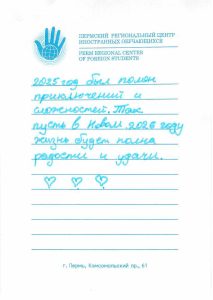 ПЕРМСКИЙ РЕГИОНАЛЬНЫЙ ЦЕНТР
ИНОСТРАННЫХ ОБУЧАЮЩИХСЯ
PERM REGIONAL CENTER
OF FOREIGN STUDENTS
2025 год был полон
приключений и
сложностей. Так
пусть в Новом 2026 году
жизнь будет полна
радости и удачи.
г. Пермь, Комсомольский пр., 61